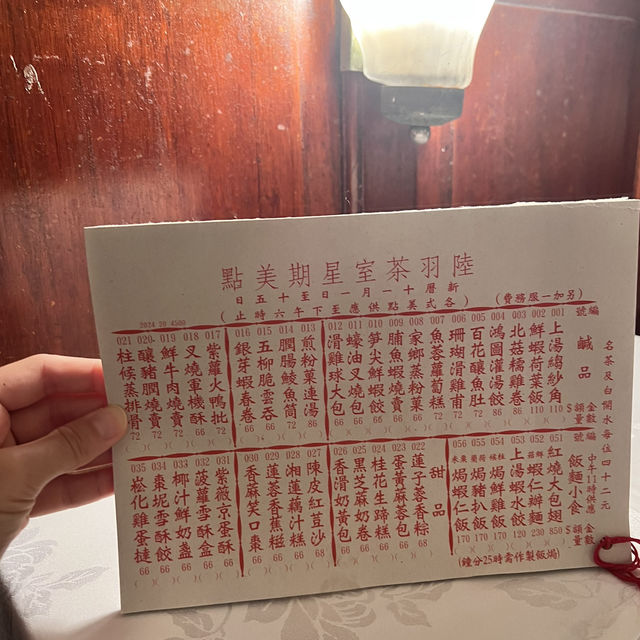 陸羽茶室星期美點
新曆十一月一日至十五日
(各式美點供應至下午六時止)
(另加一服務費)
名茶及白開水每位四十二元
編號
鹹品
金額 $
數量
001 上湯縐紗角 110
002 鮮蝦荷葉飯 110
003 北菇糯雞卷 86
004 鴻圖灌湯餃 86
005 百花釀魚肚 86
006 珊瑚滑雞甫 72
007 魚蓉蘿蔔糕 72
008 家鄉蒸粉菓 66
009 脯魚蝦燒賣 66
010 筍尖鮮蝦餃 66
011 蠔油叉燒包 66
012 滑雞球大包 66
013 煎粉菓連湯
014 潤腸鯪魚筒
015 五柳脆雲吞 66
016 銀芽蝦春卷 66
017 紫蘿火鴨批
018 叉燒軍機酥 66
019 鮮牛肉燒賣
020 釀豬膶燒賣 72
021 柱候蒸排骨 72
2024 20 4500
編號
中午11時供應
飯麵小食
金額 $
數量
051 紅燒大包翅 850
052 菇鮮蝦仁辦麵 230
053 上湯蝦水餃 120
054 焗鮮鱿飯 170
055 焗豬扒飯 170
056 焗蝦仁飯 170
(焗飯製作需時25分鐘)
甜品
022 蓮子蓉香粽 68
023 蛋黃麻蓉包 66
024 桂花生蹄糕 66
025 黑芝麻奶卷 66
026 香滑奶黃包 66
027 陳皮紅荳沙 68
028 湘蓮藕汁糕 66
029 蓮蓉香蕉糍 66
030 香麻笑口棗 66
031 紫薇京蛋酥 66
032 菠蘿雪酥盒 66
033 椰汁鮮奶盞 66
034 棗坭雪酥餅 66
035 崧化雞蛋撻 66